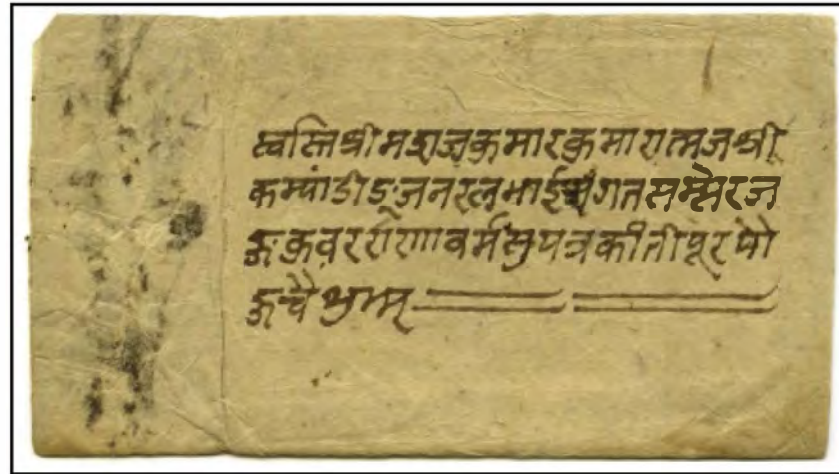 स्वस्ति श्रीमद्राजकुमारकुमारात्मजश्री
कम्यांडीङ्जनरलभाई जगतसम्सेरज
ङ्गकुवरराँणावर्मसु पत्र कीर्तीपूर पो
ङ्गचै शुभम्